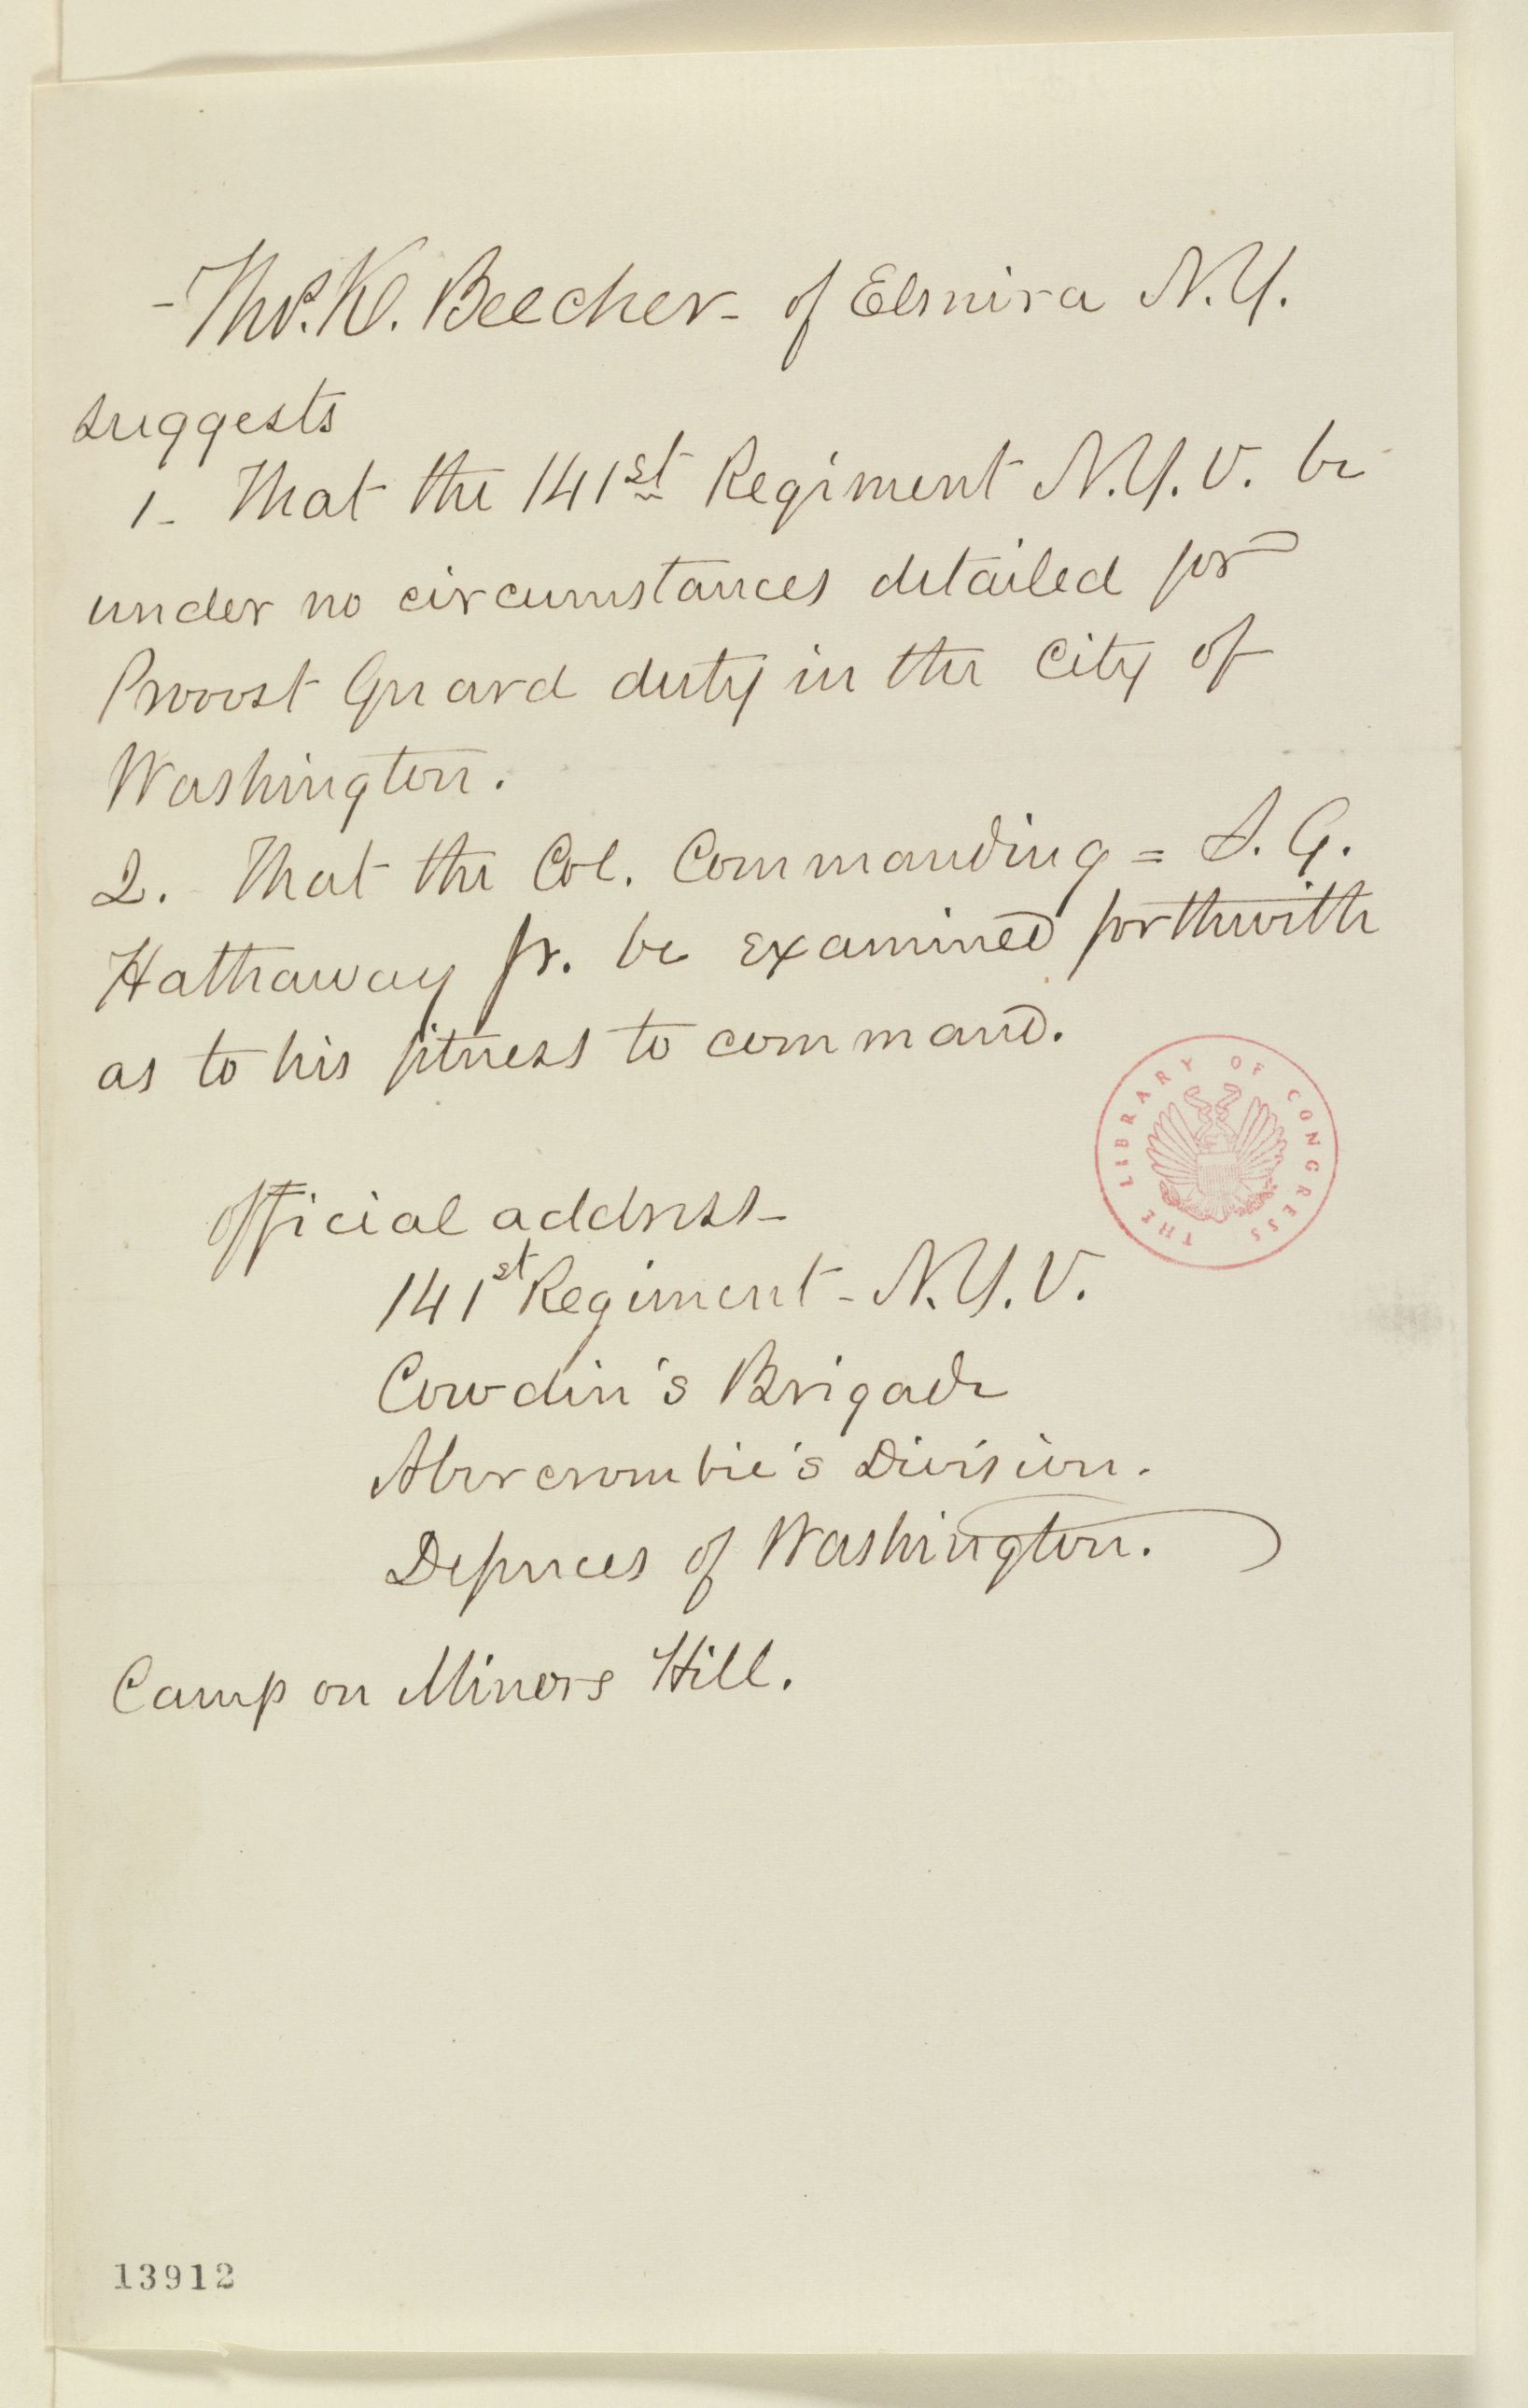 - Thos. K. Beecher - of Elmira N.Y.
suggests
1 - That the 141st Regiment N.Y.V. be
under no circumstances detailed for
Provost Guard duty in the City of
Washington.
2. That the Col. Commanding = S. G.
Hathaway Jr. be examined forthwith
as to his fitness to command.
Official address -
141st Regiment - N.Y.V.
Cowdin's Brigade
Abercrombie's Division.
Defences of Washington.
Camp on Miners Hill.
THE LIBRARY OF CONGRESS
13912